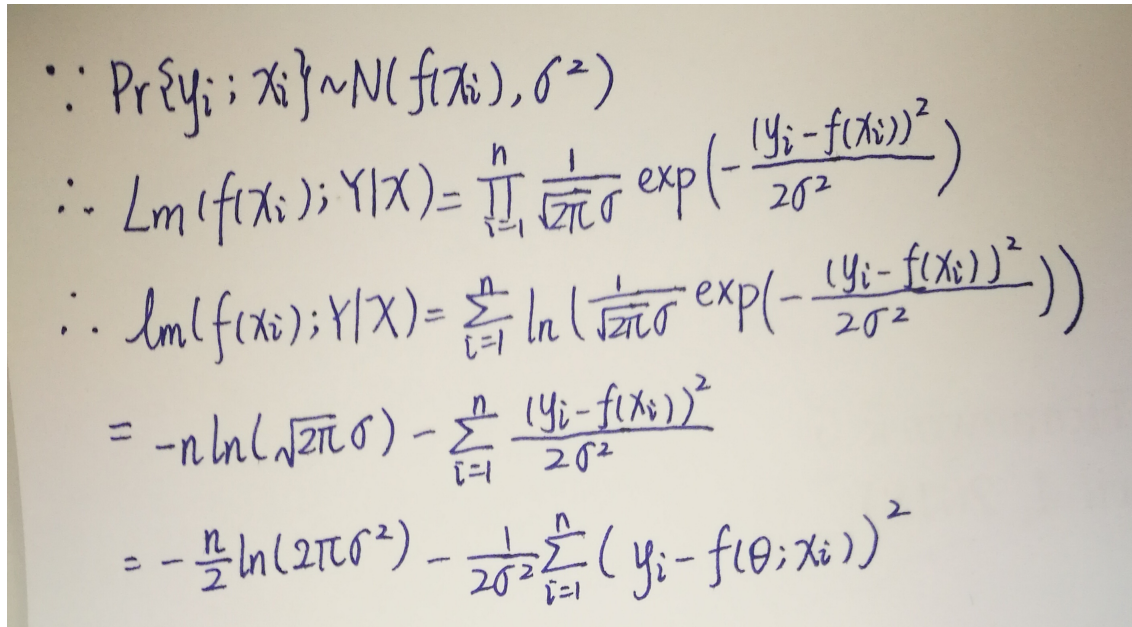 ∵ Pr{yᵢ; xᵢ}~N(f(xᵢ), σ²)
∴ Lm(f(xᵢ); Y|X) = ∏ᵢ₌₁ⁿ 1/(√(2π)σ) exp(-(yᵢ-f(xᵢ))²/(2σ²))
∴ lm(f(xᵢ); Y|X) = ∑ᵢ₌₁ⁿ ln(1/(√(2π)σ) exp(-(yᵢ-f(xᵢ))²/(2σ²)))
= -n ln(√(2π)σ) - ∑ᵢ₌₁ⁿ (yᵢ-f(xᵢ))²/(2σ²)
= -n/2 ln(2πσ²) - 1/(2σ²) ∑ᵢ₌₁ⁿ (yᵢ-f(θ; xᵢ))²